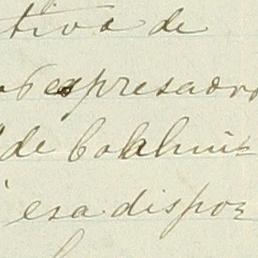 tiva de
espresado
de Coahui
esa dispos